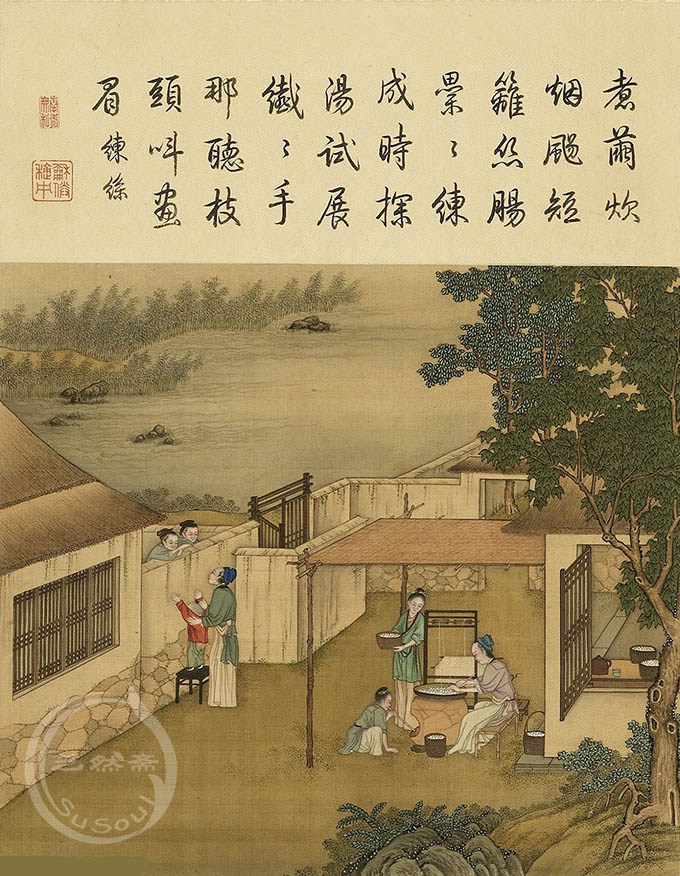 煮繭炊
烟颺短
籬絲腸
纍〻練
成時探
湯試展
纖〻手
那聽枝
頭叫畫
眉 練絲
SuSoul